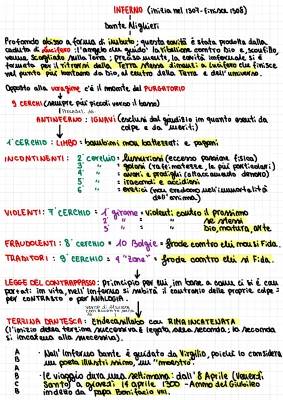 INFERNO (inizio nel 1307 - finisce 1308)
Dante Alighieri
Profondo abisso a forma di imbuto; questa cavità è stata prodotta dalla
caduta di Lucifero: l'angelo che guidò la ribellione contro Dio e, sconfitto,
venne scagliato sulla Terra; precisamente, la cavità infernale si è
formata per il ritrarsi della Terra stessa dinanzi a Lucifero che finisce
nel punto più lontano da Dio, al centro della Terra e dell'universo.
Opposto alla voragine c'è il monte del PURGATORIO
9 CERCHI (sempre più piccoli verso il basso)
ANTINFERNO: IGNAVI (esclusi dal giudizio in quanto assenti da
colpe e da meriti)
1° CERCHIO: LIMBO = bambini non battezzati e pagani
INCONTINENTI: 2° cerchio = lussuriosi (eccesso passione fisica)
3° " = golosi
4° " = avari e prodighi (attaccamento denaro)
5° " = iracondi e accidiosi
6° " = eretici (non credono nell'immortalità
dell'anima)
VIOLENTI: 7° CERCHIO = 1° girone = violenti: contro il prossimo
se stessi
Dio, natura, arte
FRAUDOLENTI: 8° cerchio = 10 Bolgie = frode contro chi non si fida
TRADITORI: 9° CERCHIO = 4 "zone" = frode contro chi si fida
LEGGE DEL CONTRAPPASSO: principio per cui, in base a come ci si è com
portati in vita, nell'Inferno si subirà il contrario delle proprie colpe =
per CONTRASTO o per ANALOGIA.
TERZINA DANTESCA: Endecasillabo con RIMA INCATENATA
(l'inizio della terzina successiva è legata alla seconda; la seconda
si incatena alla successiva).
A · Nell'Inferno Dante è guidato da Virgilio, poiché lo considera
B un poeta illustrissimo, un "maestro".
A
B · Il viaggio dura una settimana: dall'8 Aprile (Venerdì
C Santo) a giovedì 14 aprile 1300 - Anno del Giubileo
B indetto da papa Bonifacio VIII.